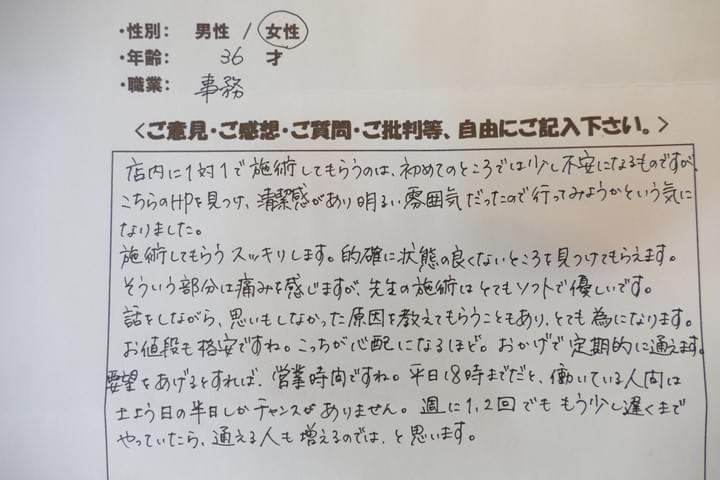 ・性別： 男性 / 女性
・年齢： 36 才
・職業： 事務
<ご意見・ご感想・ご質問・ご批判等、自由にご記入下さい。>
店内に1対1で施術してもらうのは、初めてのところでは少し不安になるものですが、
こちらのHPを見つけ、清潔感があり明るい雰囲気だったので行ってみようかという気に
なりました。
施術してもらうスッキリします。的確に状態の良くないところを見つけてもらえます。
そういう部分は痛みを感じますが、先生の施術はとてもソフトで優しいです。
話をしながら、思いもしなかった原因を教えてもらうこともあり、とても為になります。
お値段も格安ですね。こっちが心配になるほど。おかげで定期的に通えます。
要望をあげるとすれば、営業時間ですね。平日18時までだと、働いている人間は
土よう日の半日しかチャンスがありません。週に1,2回でももう少し遅くまで
やっていたら、通える人も増えるのでは、と思います。